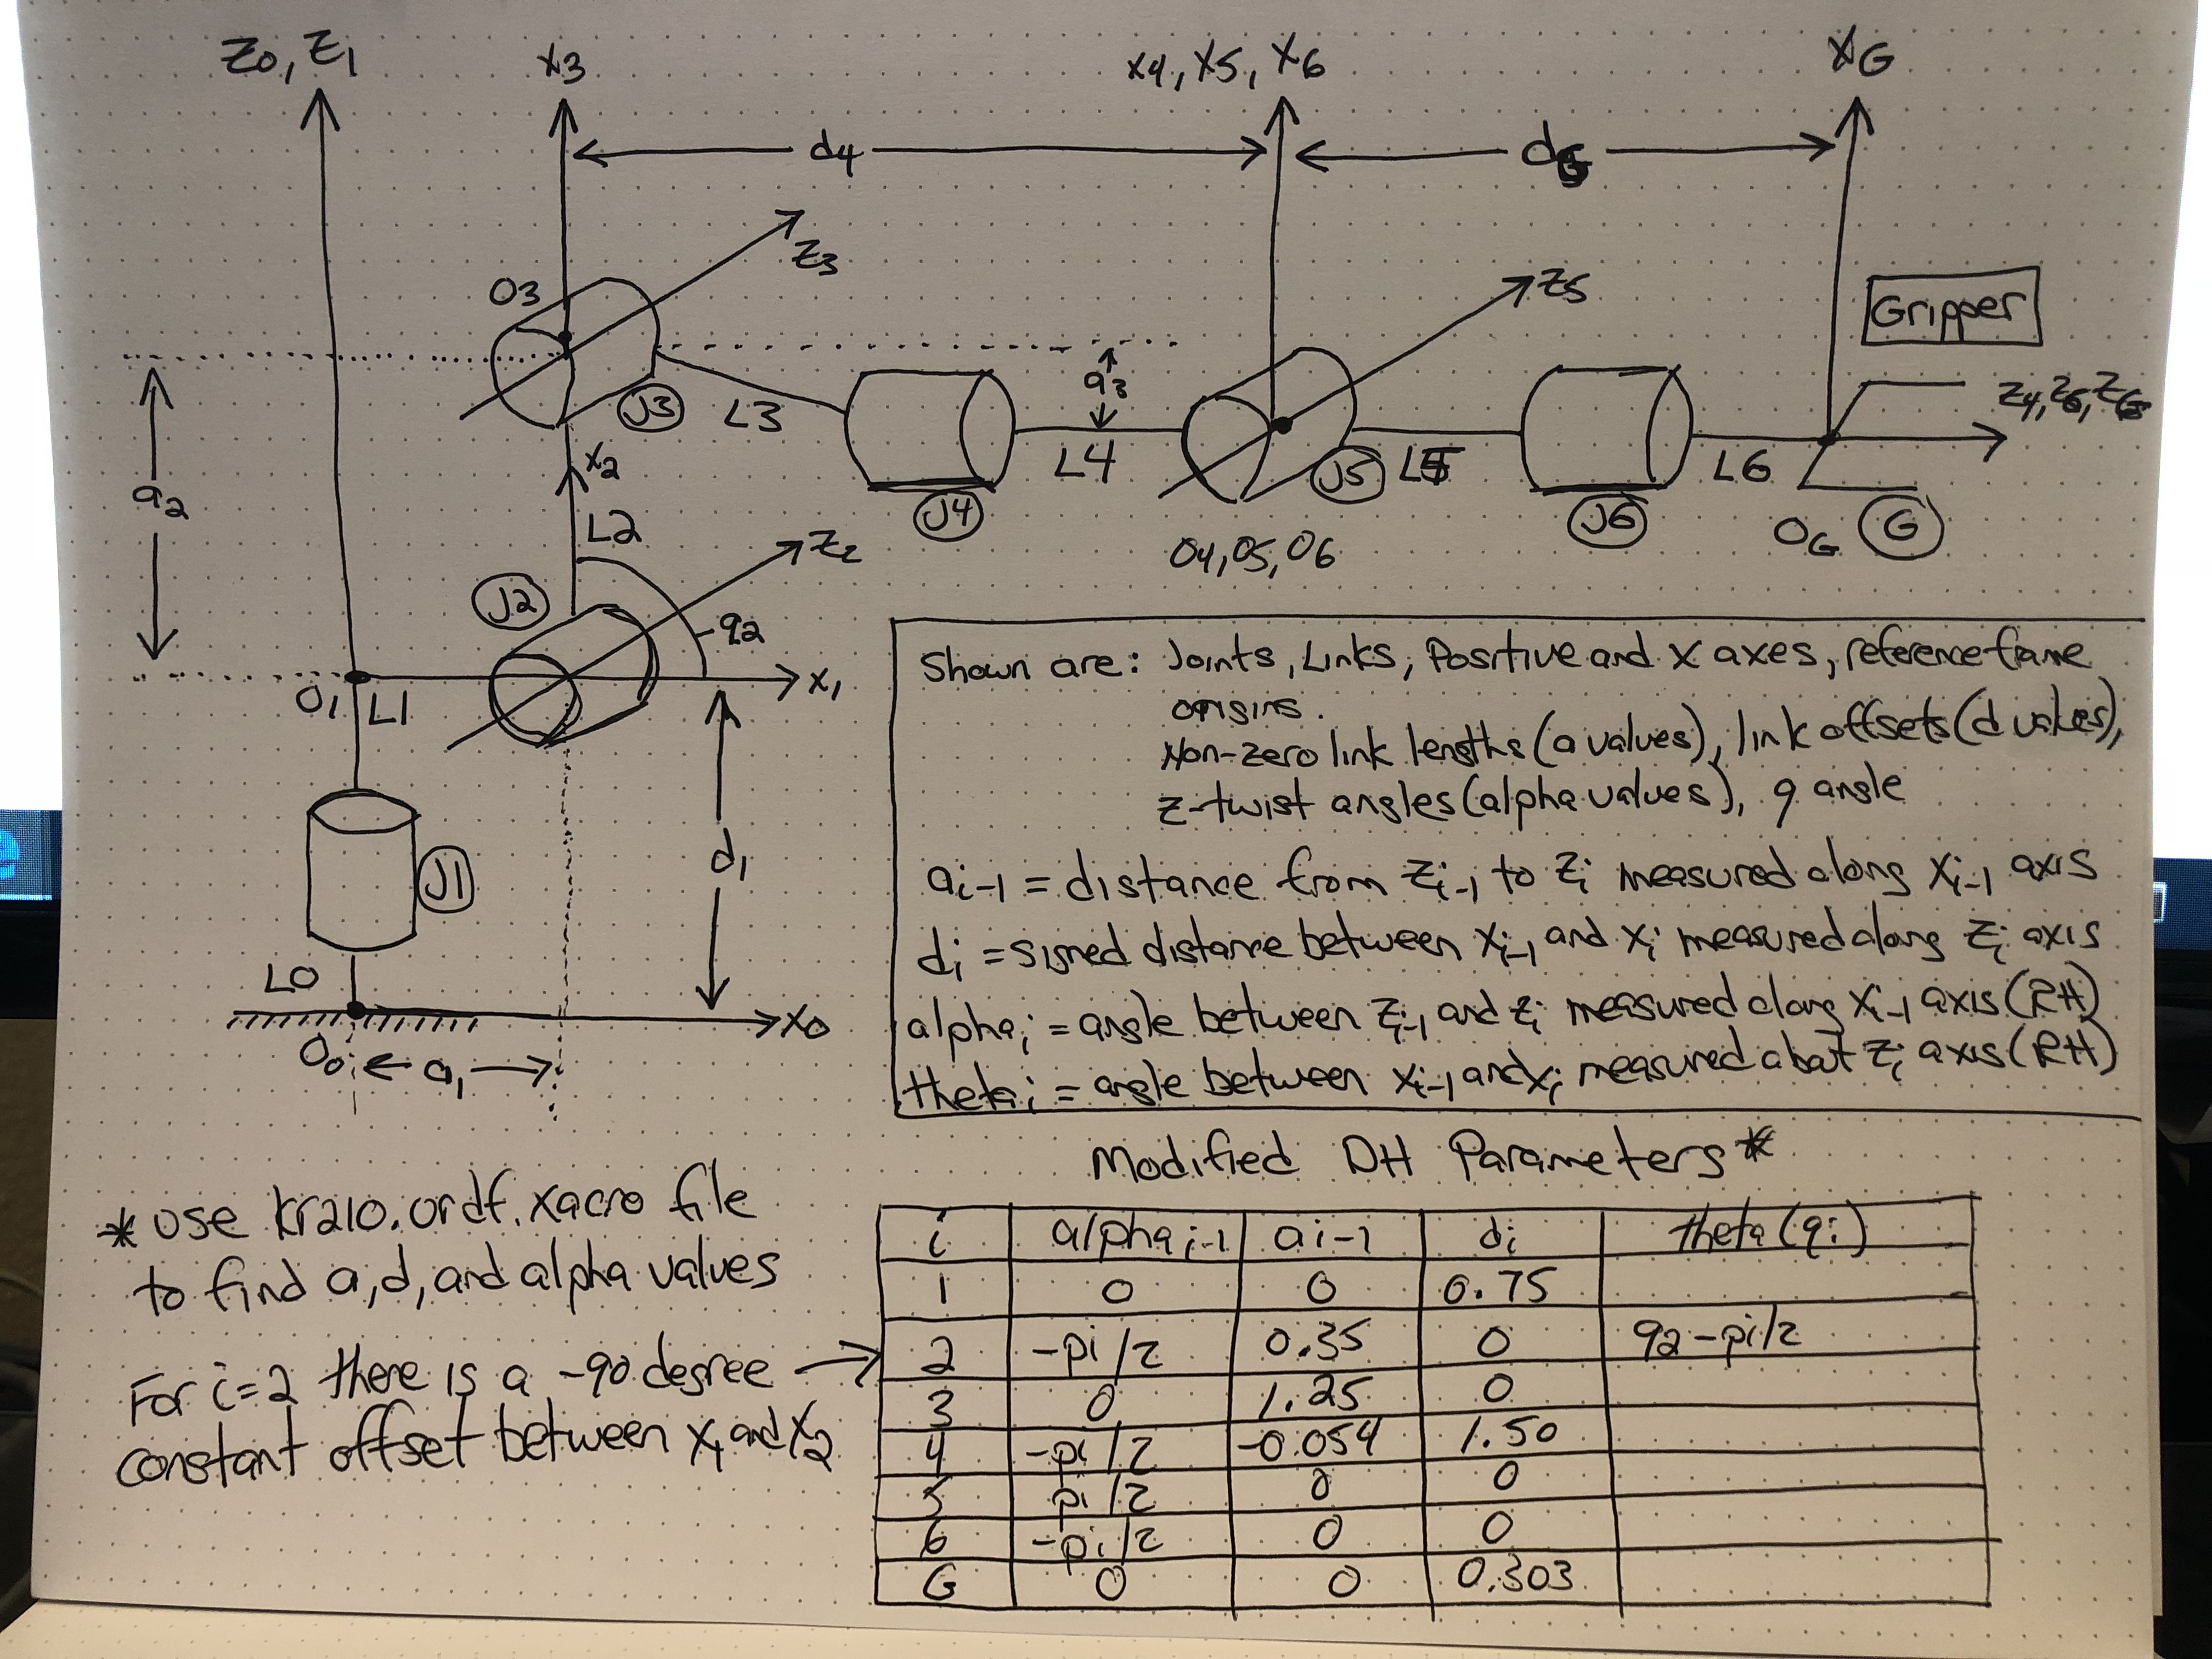 Z0, Z1
X3
X4, X5, X6
XG
d4
dG
Z3
O3
Z5
Gripper
J3
L3
a3
Z4, Z6, ZG
a2
X2
L4
J5
L5
L6
L2
J4
J6
OG
G
O4, O5, O6
Z2
J2
q2
O1
L1
X1
d1
J1
L0
X0
O0
a1
Shown are: Joints, Links, Positive and X axes, reference frame
origins.
Non-zero link lengths (a values), link offsets (d values),
z-twist angles (alpha values), q angle
ai-1 = distance from Zi-1 to Zi measured along Xi-1 axis
di = signed distance between Xi-1 and Xi measured along Zi axis
alphai = angle between Zi-1 and Zi measured along Xi-1 axis (RH)
thetai = angle between Xi-1 and Xi measured about Zi axis (RH)
Modified DH Parameters*
* Use kr210.urdf.xacro file
to find a, d, and alpha values
For i=2 there is a -90 degree
constant offset between X1 and X2
i alphai-1 ai-1 di theta (qi)
1 0 0 0.75
2 -pi/2 0.35 0 q2-pi/2
3 0 1.25 0
4 -pi/2 -0.054 1.50
5 pi/2 0 0
6 -pi/2 0 0
G 0 0 0.303